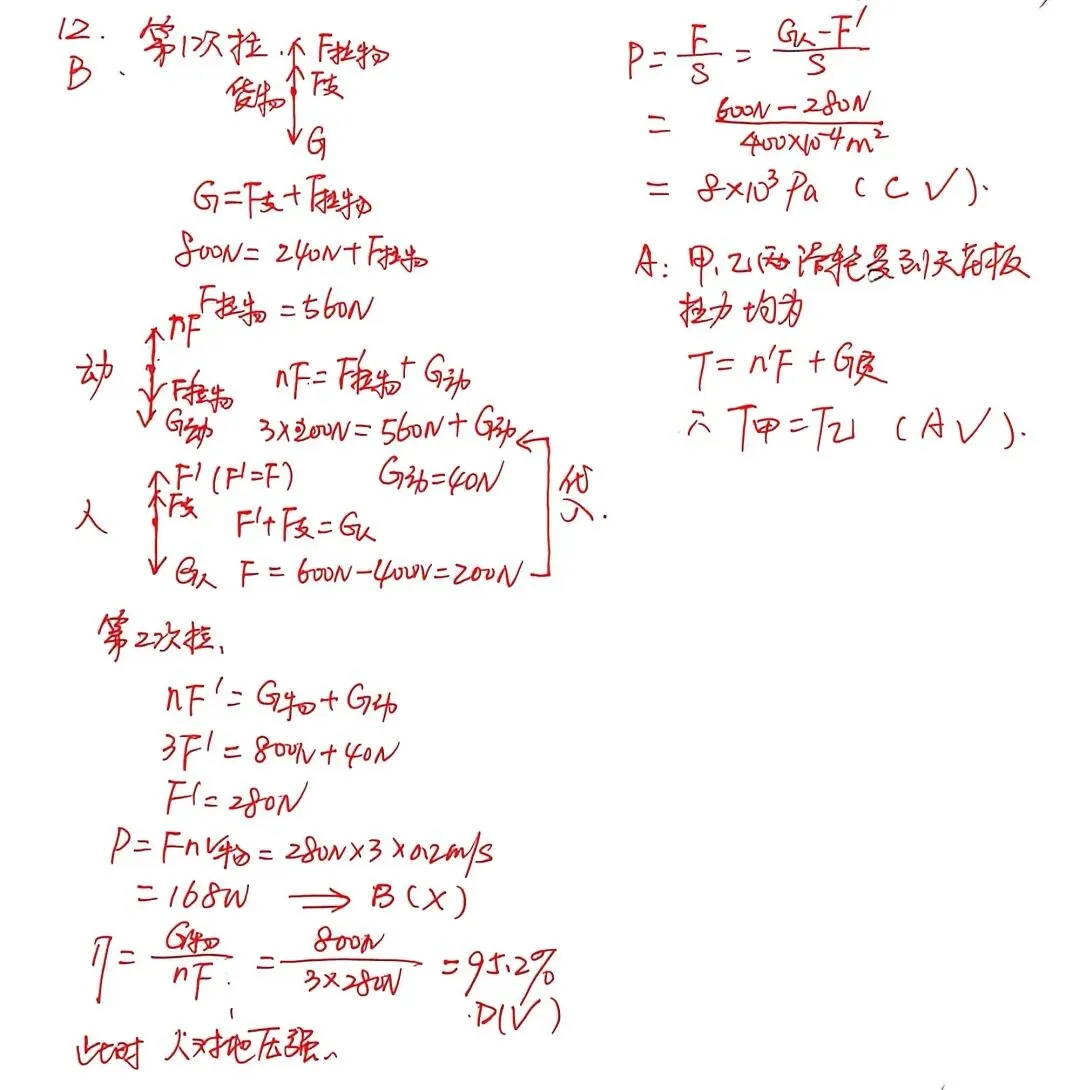 12.
B. 第1次拉. F拉物
F支
货物
G
G=F支+F拉物
800N=240N+F拉物
F拉物=560N
nF
动
F拉物
G动
nF=F拉物+G动
3×200N=560N+G动
G动=40N
F'(F'=F)
F支
人
F'+F支=G人
G人 F=600N-400N=200N
代入.
第2次拉、
nF'=G物+G动
3F'=800N+40N
F'=280N
P=Fnv物=280N×3×0.2m/s
=168W ⟹ B(×)
η=G物/nF=800N/3×280N=95.2%
D(√)
此时 人对地压强、
P=F/S=G人-F'/S
=600N-280N/400×10⁻⁴m²
=8×10³Pa (C√).
A: 甲、乙两滑轮受到天花板
拉力均为
T=n'F+G定
∴T甲=T乙 (A√).